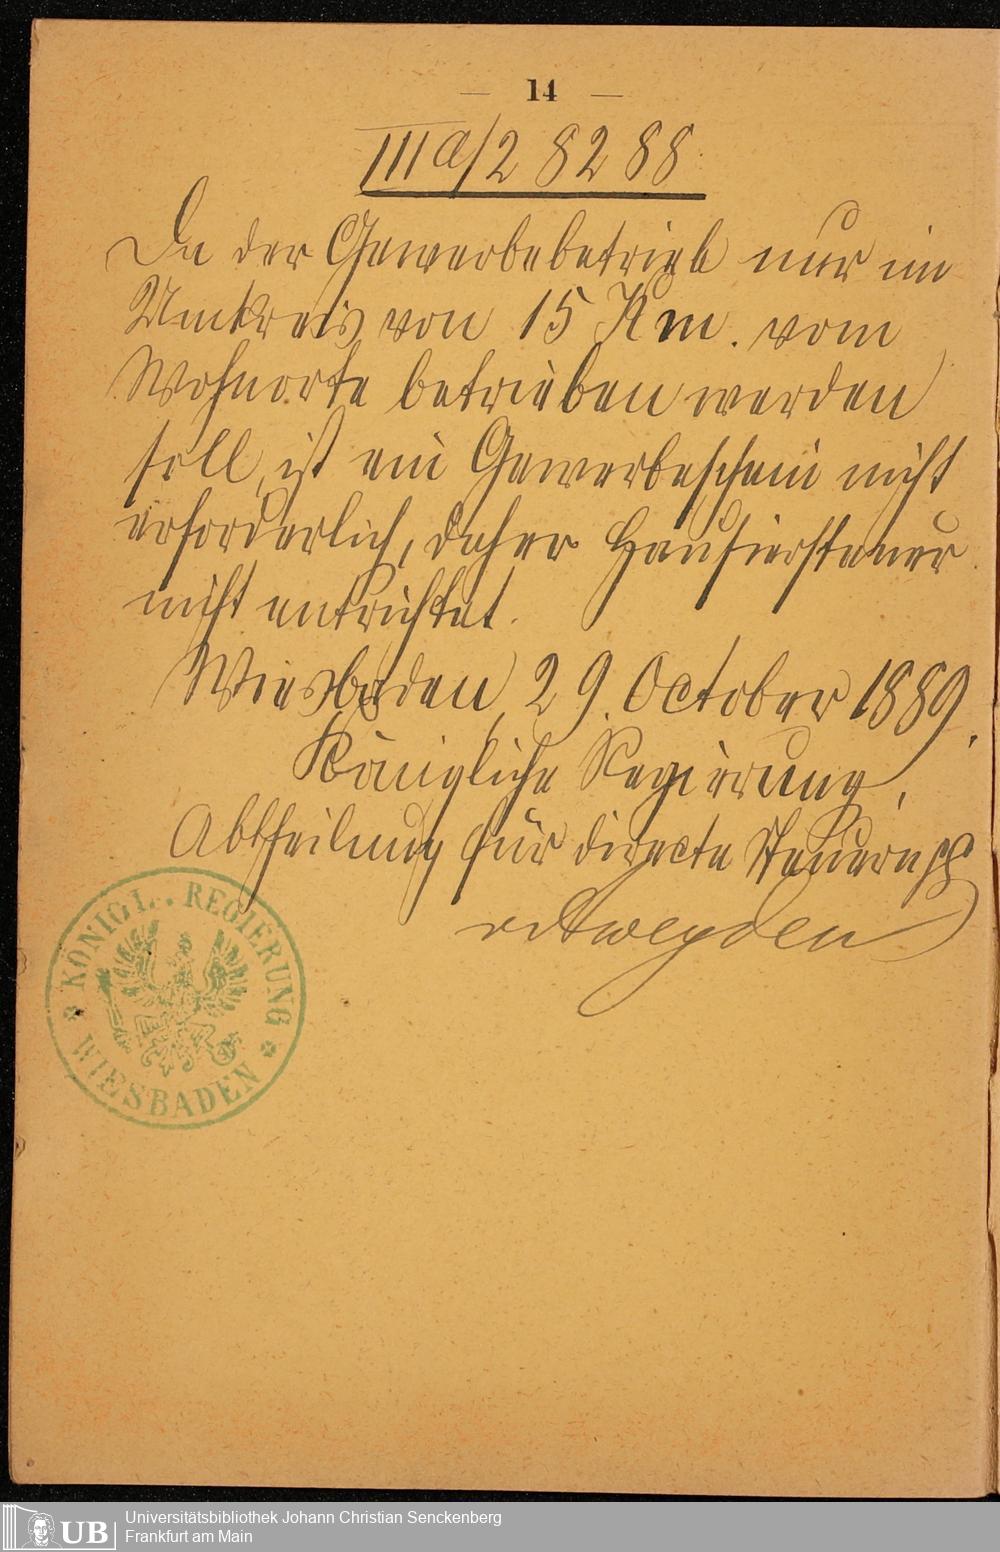 — 14 —
III a/2 8288
Da der Gewerbebetrieb nur im
Umkreis von 15 Km. vom
Wohnorte betrieben werden
soll, ist ein Gewerbeschein nicht
erforderlich, daher Hausiersteuer
nicht entrichtet.
Wiesbaden, 29. October 1889.
Königliche Regierung,
Abtheilung für directe Steuern pp
KÖNIGL. REGIERUNG
* WIESBADEN *
UB
Universitätsbibliothek Johann Christian Senckenberg
Frankfurt am Main